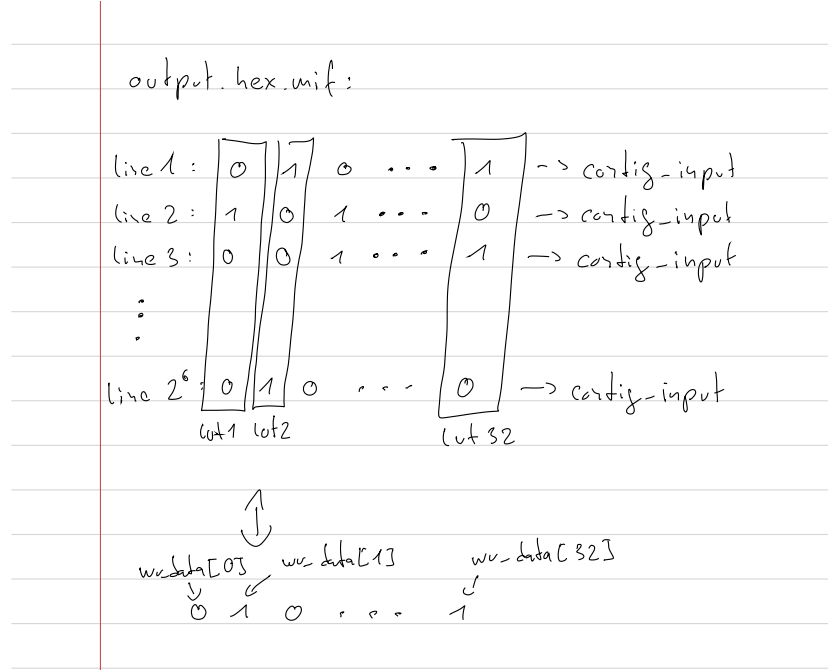 output.hex.mif:
line 1: 0 1 0 ... 1 -> config_input
line 2: 1 0 1 ... 0 -> config_input
line 3: 0 0 1 ... 1 -> config_input
⋮
line 2⁶: 0 1 0 ... 0 -> config_input
lut1 lut2 lut 32
wr_data[0] wr_data[1] wr_data[32]
0 1 0 ... 1